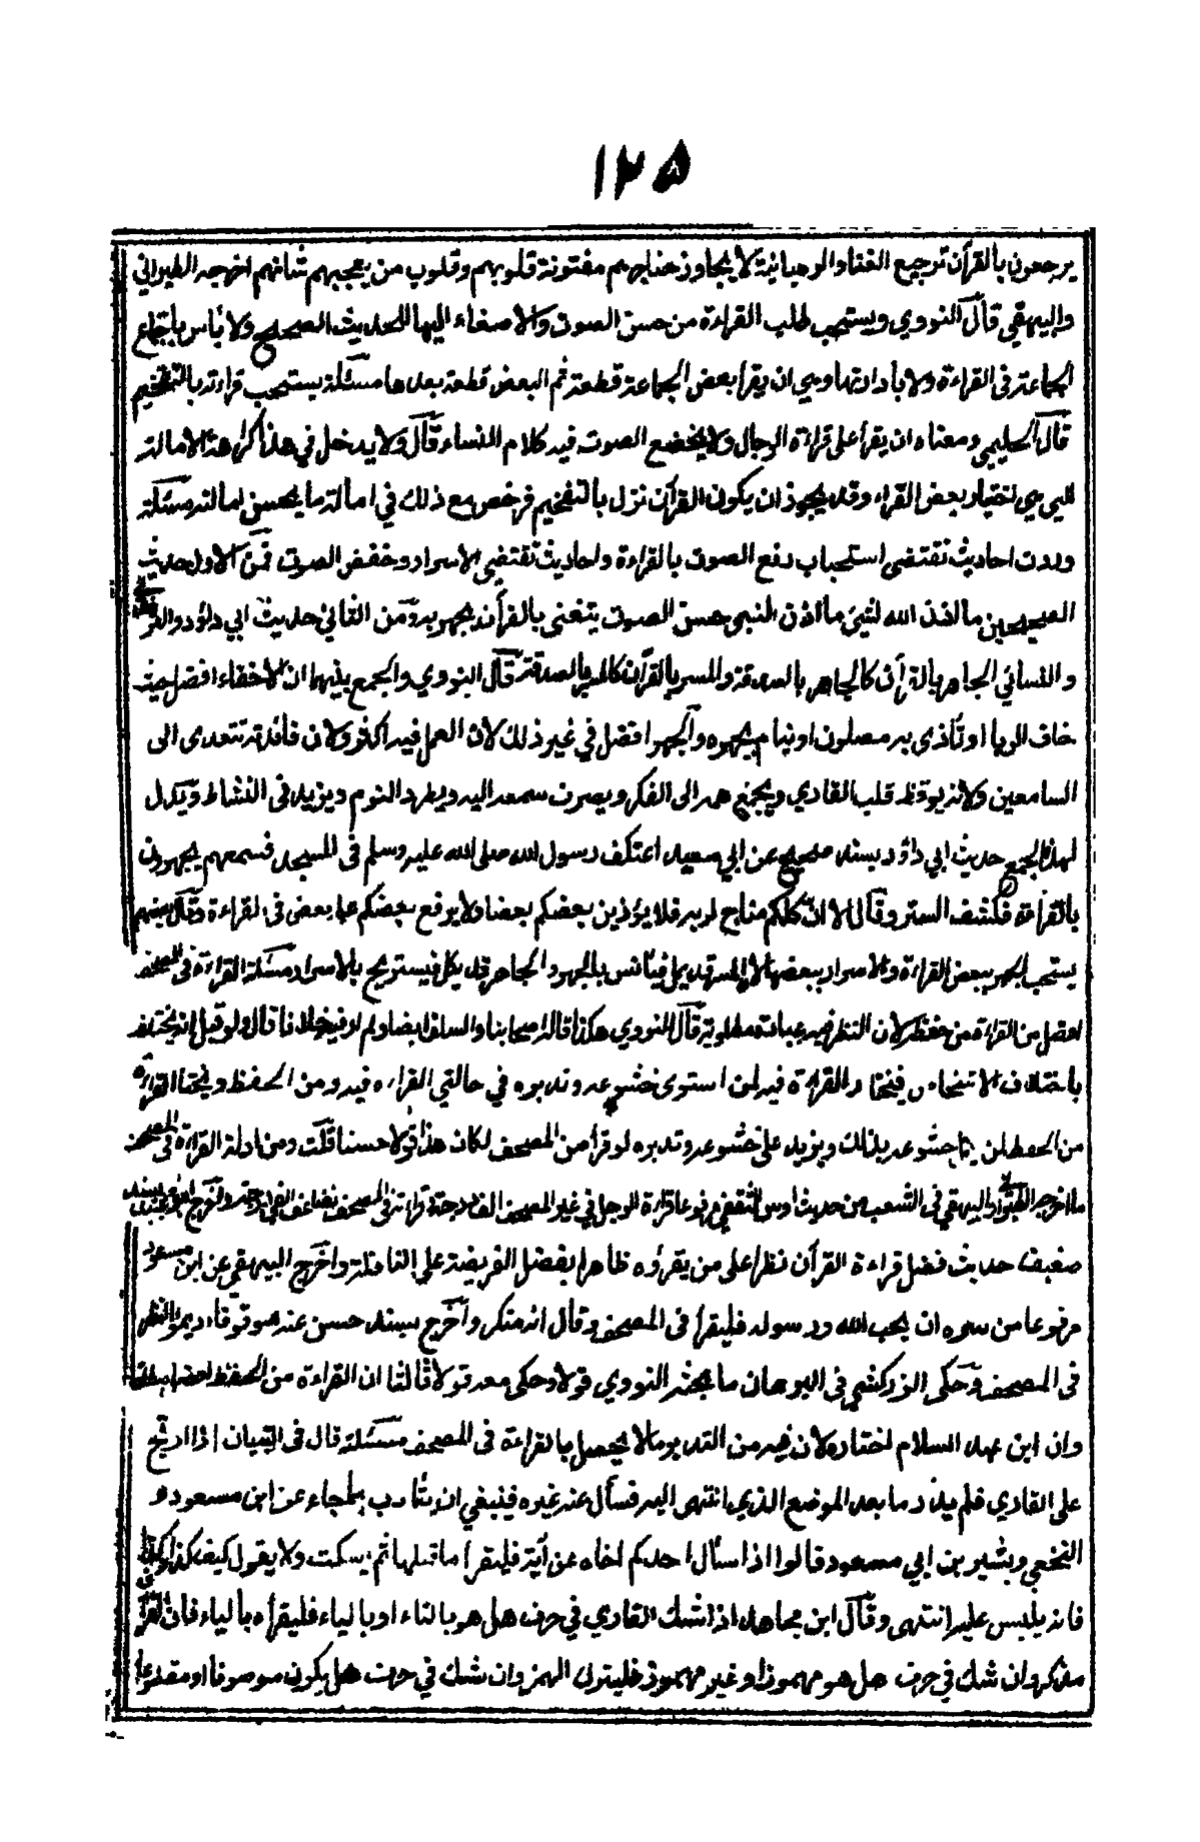 ١٢٥
يرجعون بالقرآن ترجيع الغناء والرهبانية لا يجاوز حناجرهم مفتونة قلوبهم وقلوب من يعجبهم شأنهم اخرجه الطبراني
والبيهقي قال النووي ويستحب طلب القراءة من حسن الصوت والاصغاء اليها للحديث الصحيح ولا بأس باجتماع
الجماعة في القراءة ولا بادارتها وهي ان يقرأ بعض الجماعة قطعة ثم البعض قطعة بعدها مسئلة يستحب قراءته بالتفخيم
قال الحليمي ومعناه ان يقرأ على قراءة الرجال ولا يخضع الصوت فيه ككلام النساء قال ولا يدخل في هذا كراهة الامالة
التي هي اختيار بعض القراء وقد يجوز ان يكون القرآن نزل بالتفخيم فرخص مع ذلك في امالة ما يحسن امالته مسئلة
وردت احاديث تقتضي استحباب رفع الصوت بالقراءة واحاديث تقتضي الاسرار وخفض الصوت فمن الاول حديث
الصحيحين ما اذن الله لشيء ما اذن لنبي حسن الصوت يتغنى بالقرآن يجهر به ومن الثاني حديث ابي داؤد والترمذي
والنسائي الجاهر بالقرآن كالجاهر بالصدقة والمسر بالقرآن كالمسر بالصدقة قال النووي والجمع بينهما ان الاخفاء افضل حيث
خاف الريا او تأذى به مصلون او نيام بجهره والجهر افضل في غير ذلك لان العمل فيه اكثر ولان فائدته تتعدى الى
السامعين ولانه يوقظ قلب القاري ويجمع همه الى الفكر ويصرف سمعه اليه ويطرد النوم ويزيد في النشاط ويدل
لهذا الجمع حديث ابي داؤد بسند صحيح عن ابي سعيد اعتكف رسول الله صلى الله عليه وسلم في المسجد فسمعهم يجهرون
بالقراءة فكشف الستر وقال الا ان كلكم مناج لربه فلا يؤذين بعضكم بعضا ولا يرفع بعضكم على بعض في القراءة وقال بعضهم
يستحب الجهر ببعض القراءة والاسرار ببعضها لان المسر قد يمل فيأنس بالجهر والجاهر قد يكل فيستريح بالاسرار مسئلة القراءة في المصحف
افضل من القراءة من حفظه لان النظر فيه عبادة مطلوبة قال النووي هكذا قاله اصحابنا والسلف ايضا ولم ار فيه خلافا قال ولو قيل انه يختلف
باختلاف الاشخاص فيختار القراءة فيه لمن استوى خشوعه وتدبره في حالتي القراءة فيه ومن الحفظ ويختار القراءة
من الحفظ لمن يتم خشوعه بذلك ويزيد على خشوعه وتدبره لو قرأ من المصحف لكان هذا قولا حسنا قلت ومن ادلة القراءة في المصحف
ما اخرجه الطبراني والبيهقي في الشعب من حديث اوس الثقفي مرفوعا قراءة الرجل في غير المصحف الف درجة وقراءته في المصحف تضاعف الفي درجة واخرج ابو عبيد بسند
ضعيف حديث فضل قراءة القرآن نظرا على من يقرؤه ظاهرا كفضل الفريضة على النافلة واخرج البيهقي عن ابن مسعود
مرفوعا من سره ان يحب الله ورسوله فليقرأ في المصحف وقال انه منكر واخرج بسند حسن عنه موقوفا ديموا النظر
في المصحف وحكى الزركشي في البرهان ما بحثه النووي قولا وحكى معه قولا ثالثا ان القراءة من الحفظ افضل مطلقا
وان ابن عبد السلام اختاره لان فيه من التدبر ما لا يحصل بالقراءة في المصحف مسئلة قال في التبيان اذا ارتج
على القاري فلم يدر ما بعد الموضع الذي انتهى اليه فسأل عنه غيره فينبغي ان يتأدب بما جاء عن ابن مسعود و
النخعي وبشير بن ابي مسعود قالوا اذا سأل احدكم اخاه عن آية فليقرأ ما قبلها ثم يسكت ولا يقول كيف كذا وكذا
فانه يلبس عليه انتهى وقال ابن مجاهد اذا شك القاري في حرف هل هو بالتاء او بالياء فليقرأه بالياء فان القرآن
مذكر وان شك في حرف هل هو مهموز او غير مهموز فليترك الهمز وان شك في حرف هل يكون موصولا او مقطوعا